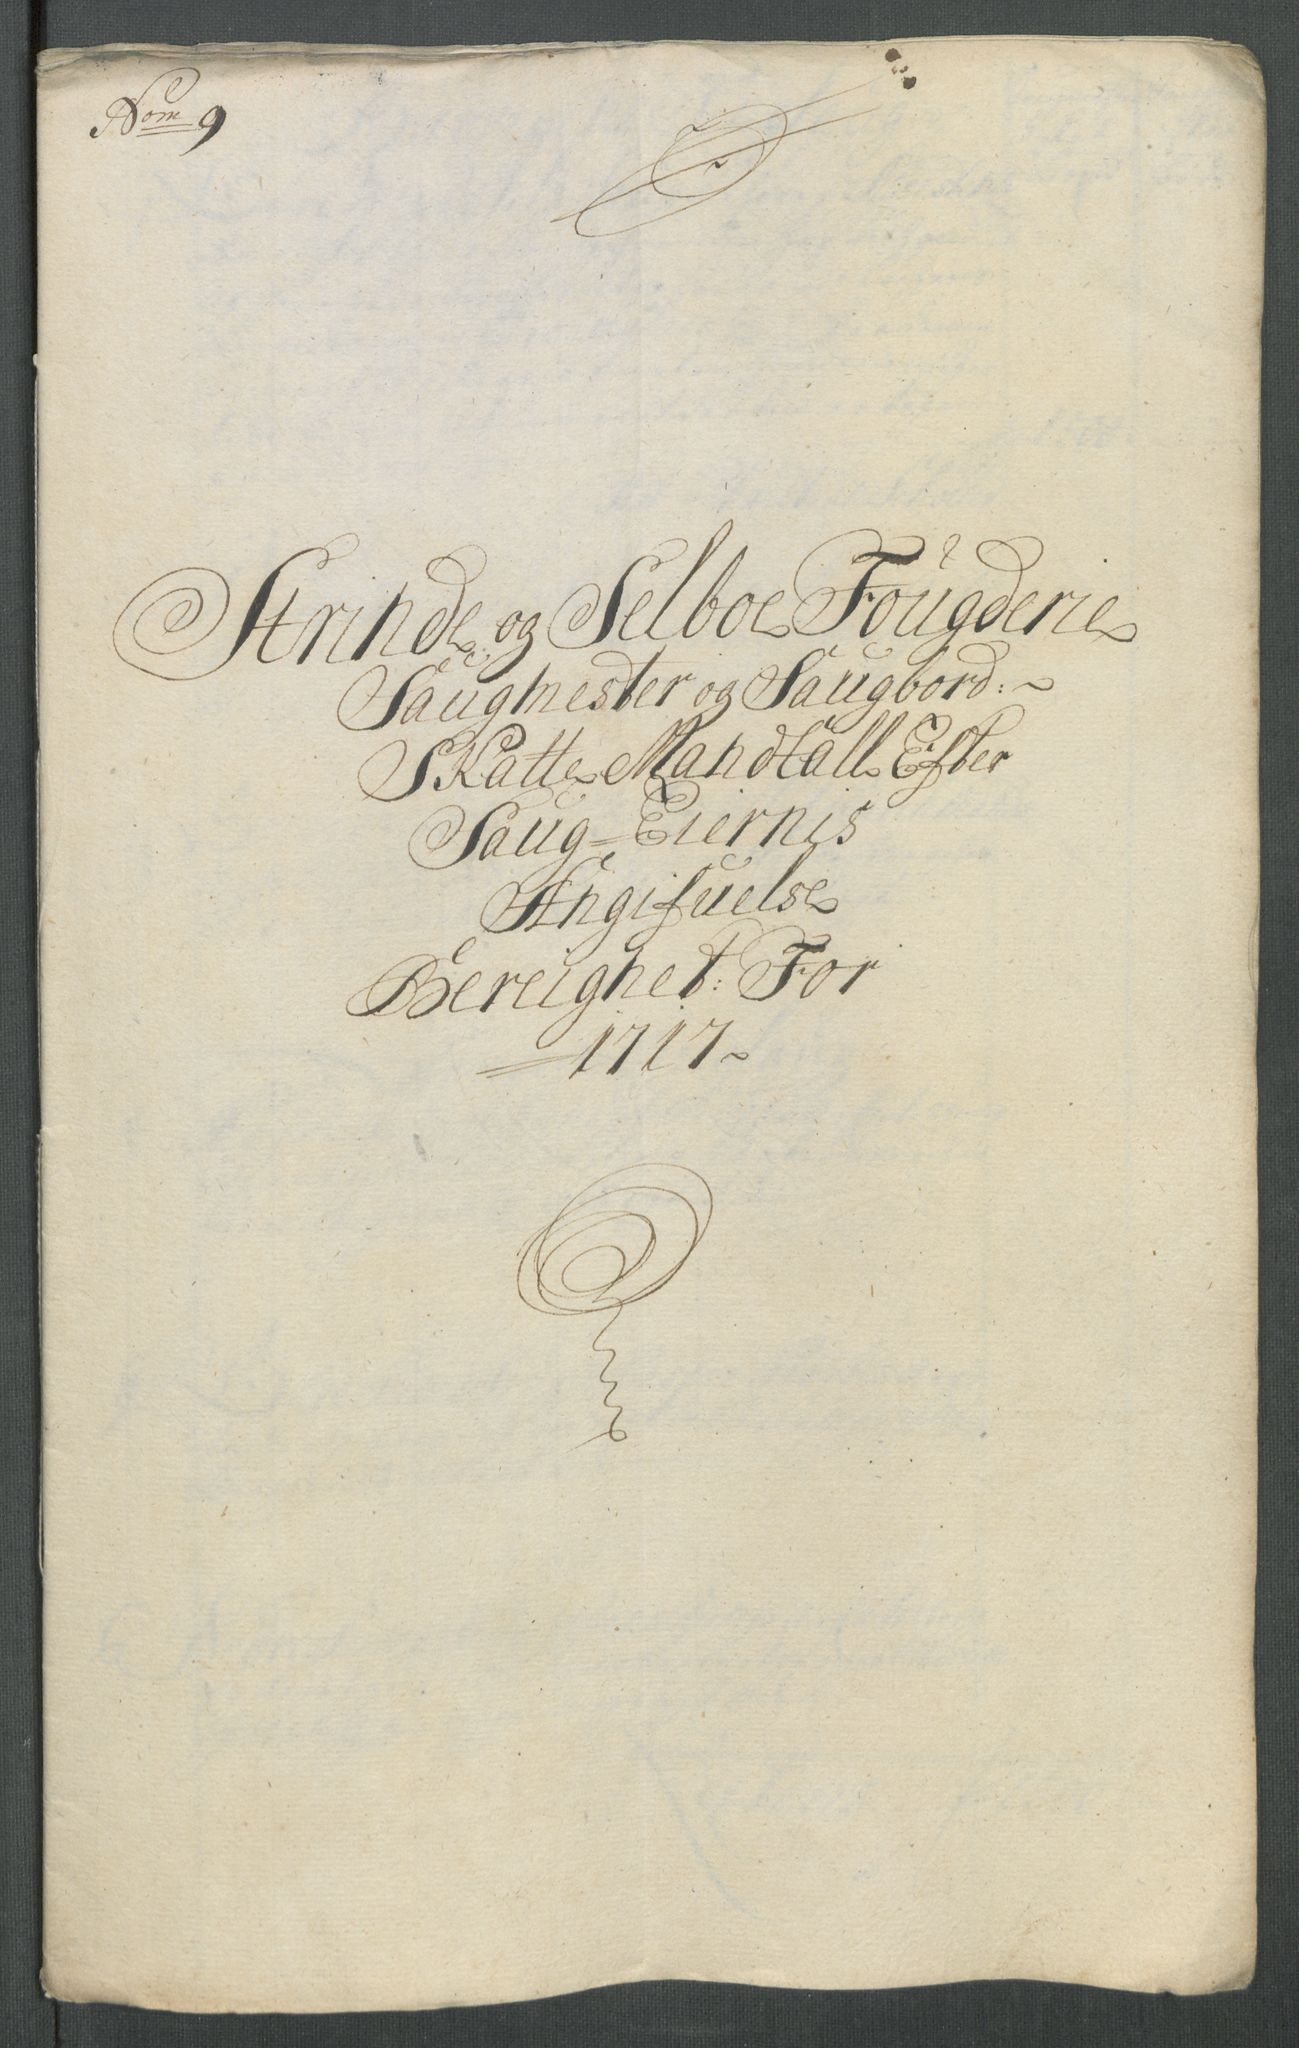 Nom 9
Strinde og Selboe Fougderie
Saugmester og Saugbord:
Skatte Mandtall Efter
Saug-Eiernis
Angifuelse
Bereignet: For
1717